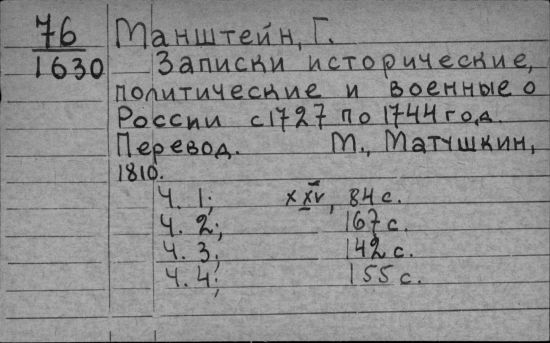 76
1630
Манштейн, Г.
Записки исторические,
политические и военные о
России с 1727 по 1744 год.
Перевод. М., Матушкин,
1810.
Ч. 1; xxv, 84 с.
Ч. 2; 167 с.
Ч. 3; 142 с.
Ч. 4; 155 с.